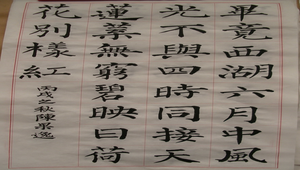 畢竟西湖六月中風
光不與四時同接天
蓮葉無窮碧映日荷
花別樣紅
丙戌之秋陳逸